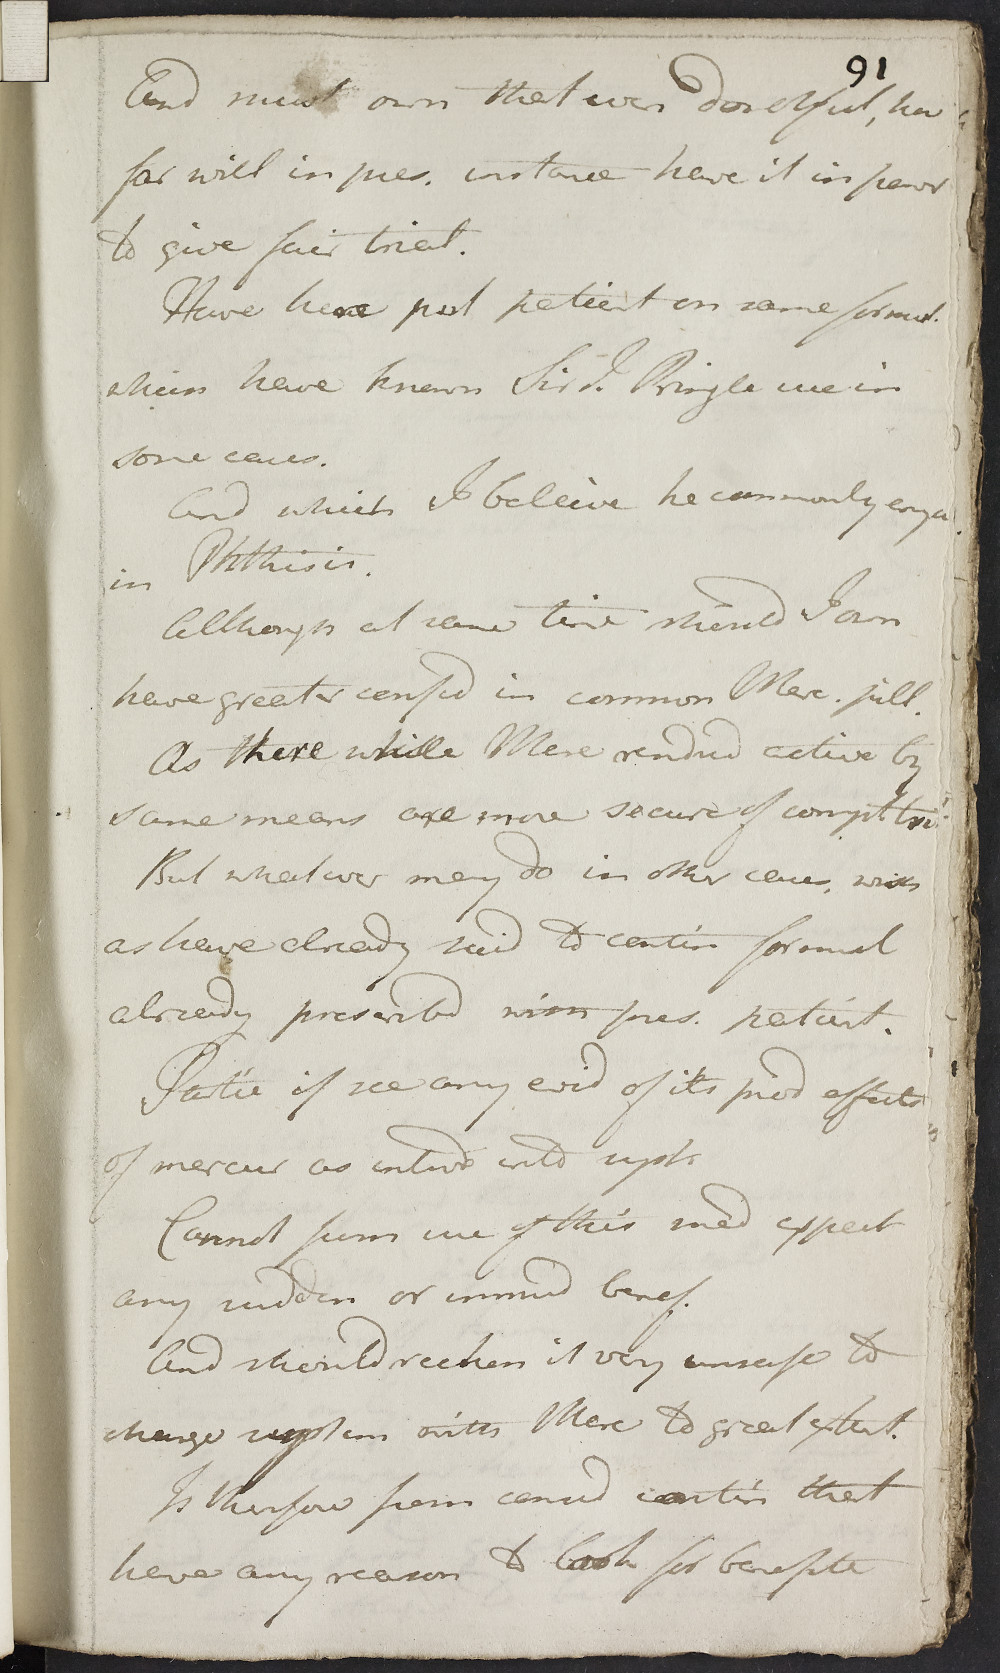 91
And must own that even doubtful, how
far will in pres. instance have it in powr
to give fair trial.
Have here put patient on same formul.
which have known Sir J. Pringle use in
some cases.
And which I beleive he commonly
in Phthisis.
Although at same time should I own
have greater confid in common Merc. pill.
As there while Merc rendrd active by
same means are more secure of
But whatever may do in other cases, wish
as have already said to contin formul
already prescribd with pres. patient.
Partic if see any evid of its prod effects
of mercur as introd into syst
Cannot from use of this med expect
any sudden or immed benef.
And should reckon it very unsafe to
charge system with Merc to great extent.
Is therefore from consid contin that
have any reason to look for benefite